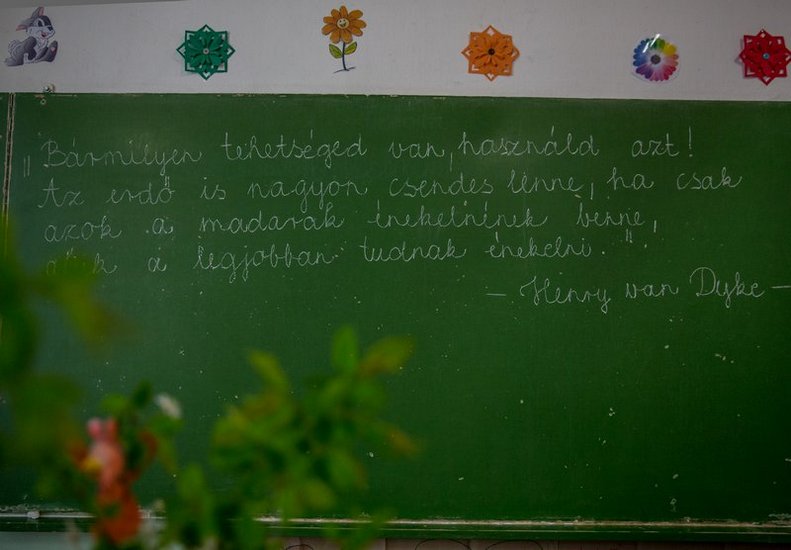 "Bármilyen tehetséged van, használd azt!
Az erdő is nagyon csendes lenne, ha csak
azok a madarak énekelnének benne,
akik a legjobban tudnak énekelni."
- Henry van Dyke -